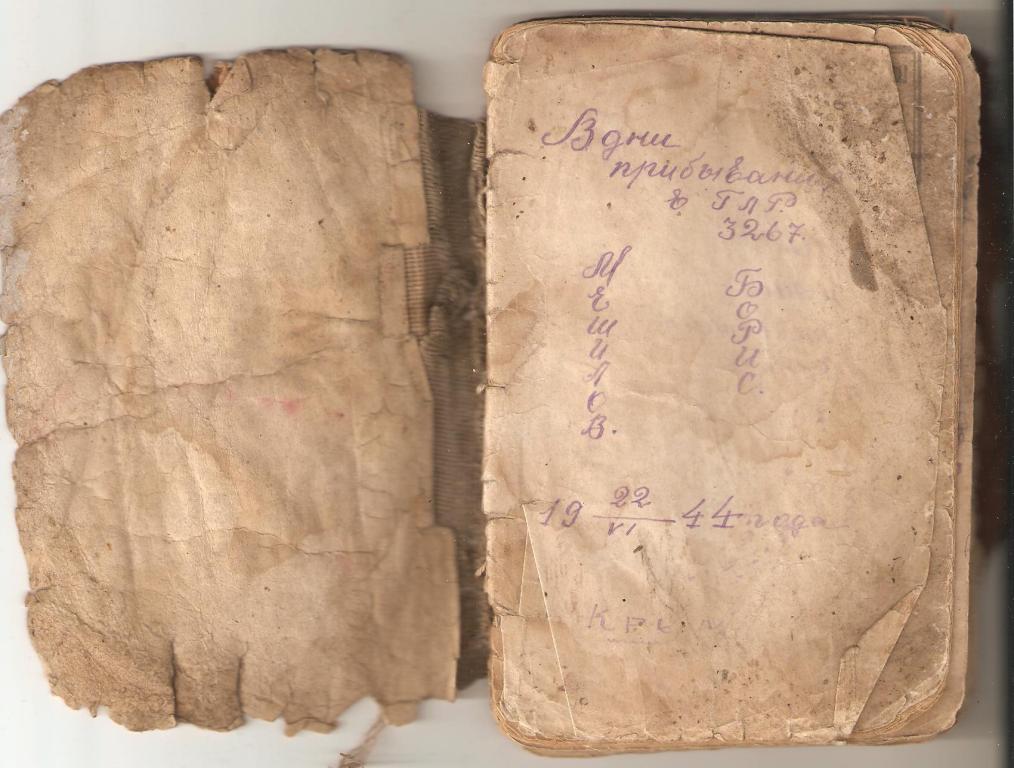 В дни
прибывания
в ГЛР
3267.
Мешилов. Борис.
19 22/VI 44 года